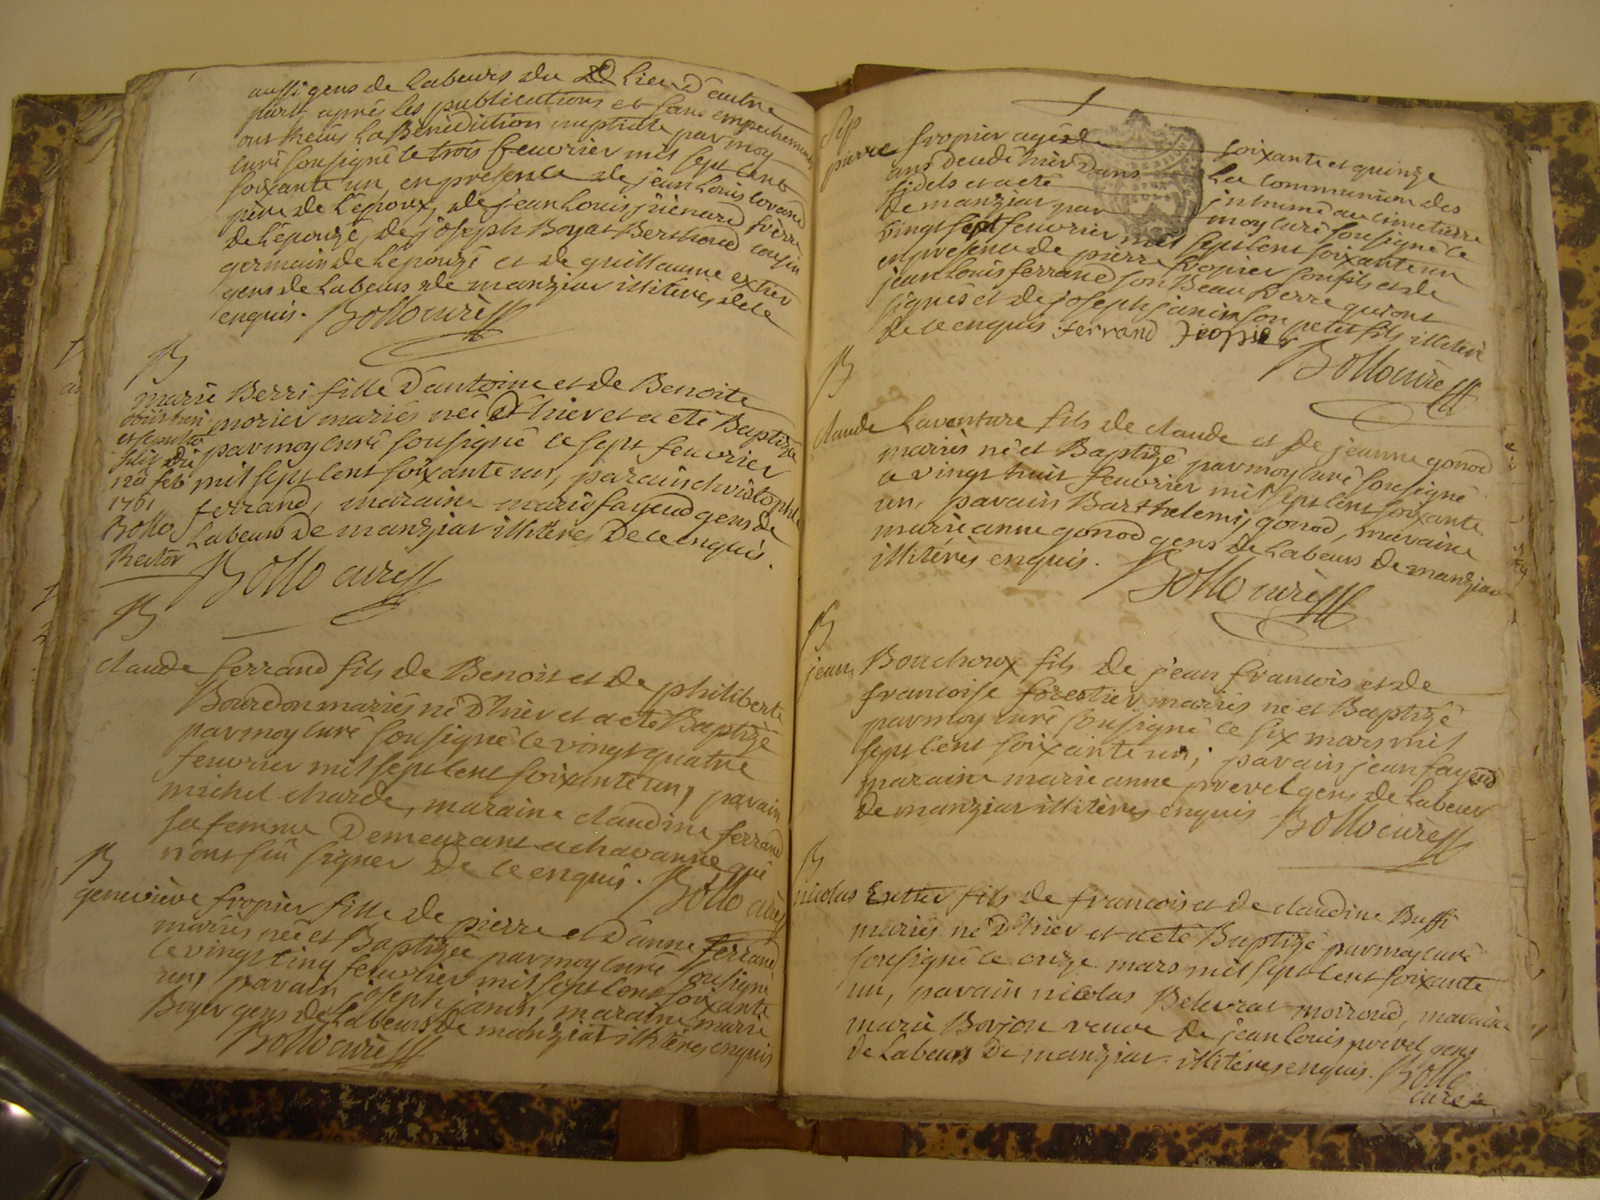 aussi gens de Labeurs du D Lieu D'autre
part après les publications et sans empechement
ont Reçus La Bénédiction nuptiale par moy
curé soussigné le trois feuvrier mil sept cent
soixante un en présence de jean Louis
père de L'époux, de jean Louis frère
de L'épouze, de joseph Boyat Berthoud cousin
germain de L'épouze et de guillaume extier
gens de Labeurs de manziat illitérés de ce
enquis. Bollo curé
B
marie Berri fille D'antoine et de Benoite
morier mariés née D'hier et a eté Baptizée
par moy curé sousigné le sept feuvrier
mil sept cent soixante un, parain christophle
ferrand, maraine marie fayend gens de
Labeurs De manziat illitérés De ce enquis.
Bollo curé
1761
Bollo
Rector
B
claude ferrand fils de Benoit et de philiberte
Bourdon mariés né D'hier et a eté Baptizé
par moy curé sousigné le vingt quatre
feuvrier mil sept cent soixante un, parain
michel charde, maraine claudine ferrand
sa femme Demeurant a chavanne qui
n'ont sçu signer De ce enquis. Bollo curé
B
genevieve fropier fille de pierre et D'anne ferrand
mariés née et Baptizée par moy curé sousigné
le vingt cinq feuvrier mil sept cent soixante
un, parain joseph janin, maraine marie
Boyer gens de Labeurs de manziat illitérés enquis
Bollo curé
Sep
pierre fropier agé de soixante et quinze
ans decedé hier Dans La communion des
fidels et a eté inhumé au cimetierre
de manziat par moy curé sousigné le
vingt sept feuvrier mil sept cent soixante un
en presence de pierre fropier son fils et de
jean Louis ferrand son Beau frerre qui ont
signés et de joseph janin son petit fils illitéré
de ce enquis ferrand fropier
Bollo curé
B
claude Laventure fils de claude et de jeanne gonod
mariés né et Baptizé par moy curé sousigné
le vingt huit feuvrier mil sept cent soixante
un, parain Barthelemy gonod, maraine
marie anne gonod gens de Labeurs de manziat
illitérés enquis. Bollo curé
B
jean Bouchoux fils de jean francois et de
francoise forestier mariés né et Baptizé
par moy curé sousigné le six mars mil
sept cent soixante un; parain jean fayend
maraine marie anne prevel gens de Labeur
de manziat illitérés enquis Bollo curé
B
nicolas Extier fils de francois et de claudine Buffi
mariés né D'hier et a eté Baptizé par moy curé
sousigné le onze mars mil sept cent soixante
un, parain nicolas moiroud, maraine
marie Borjon veuve de jean Louis prevel gens
de Labeurs De manziat illitérés enquis. Bollo
curé